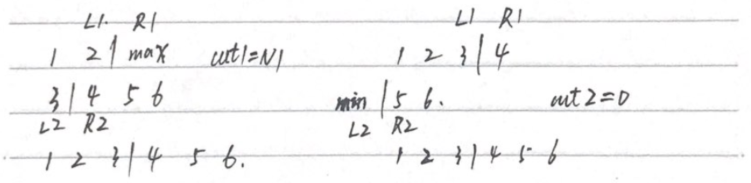 L1 R1 L1 R1
1 2 | max cut1=N1 1 2 3 | 4
3 | 4 5 6 min | 5 6. cut2=0
L2 R2 L2 R2
1 2 3 | 4 5 6. 1 2 3 | 4 5 6